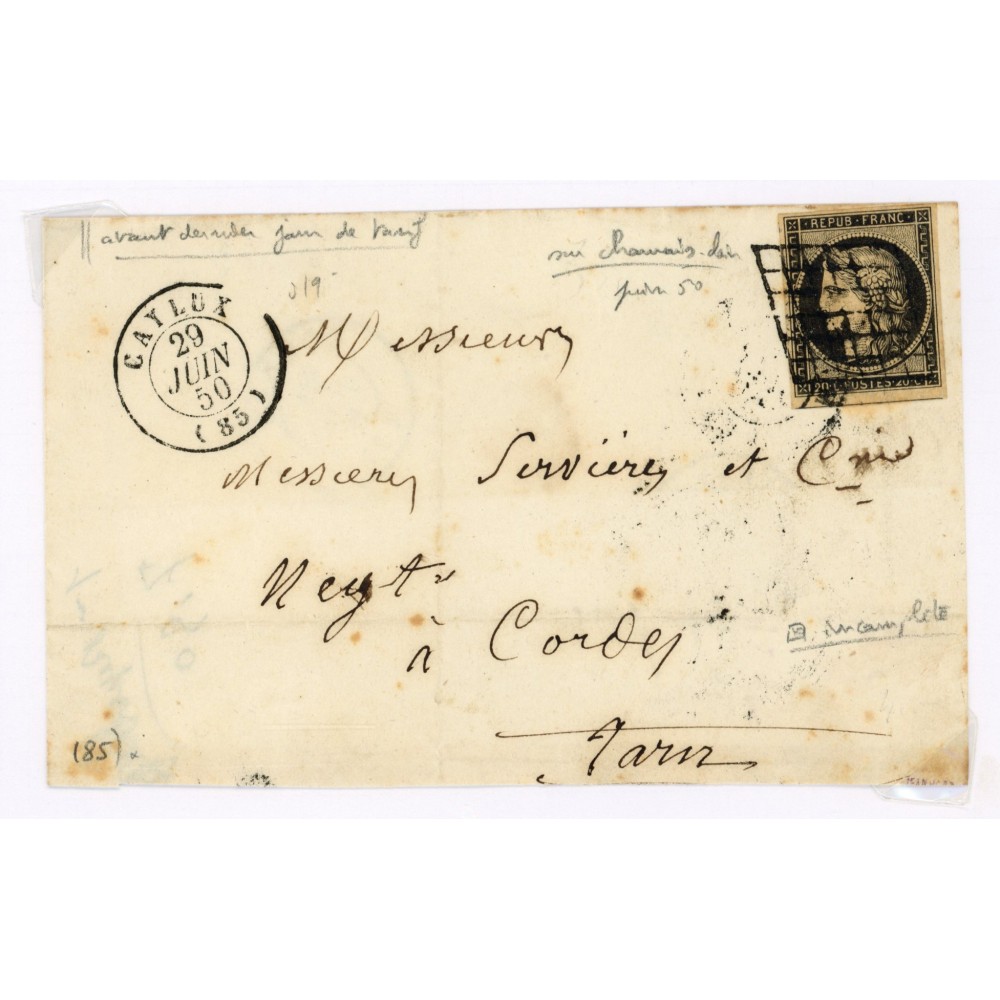 avant dernier jour de tarif
sur chamois clair
juin 50
REPUB·FRANC·
20·C·POSTES·20·C·
CAYLUX
29
JUIN
50
(85)
Messieurs
Messieurs Servières et Cie
Negts
à Cordes
incomplète
Tarn
(85)